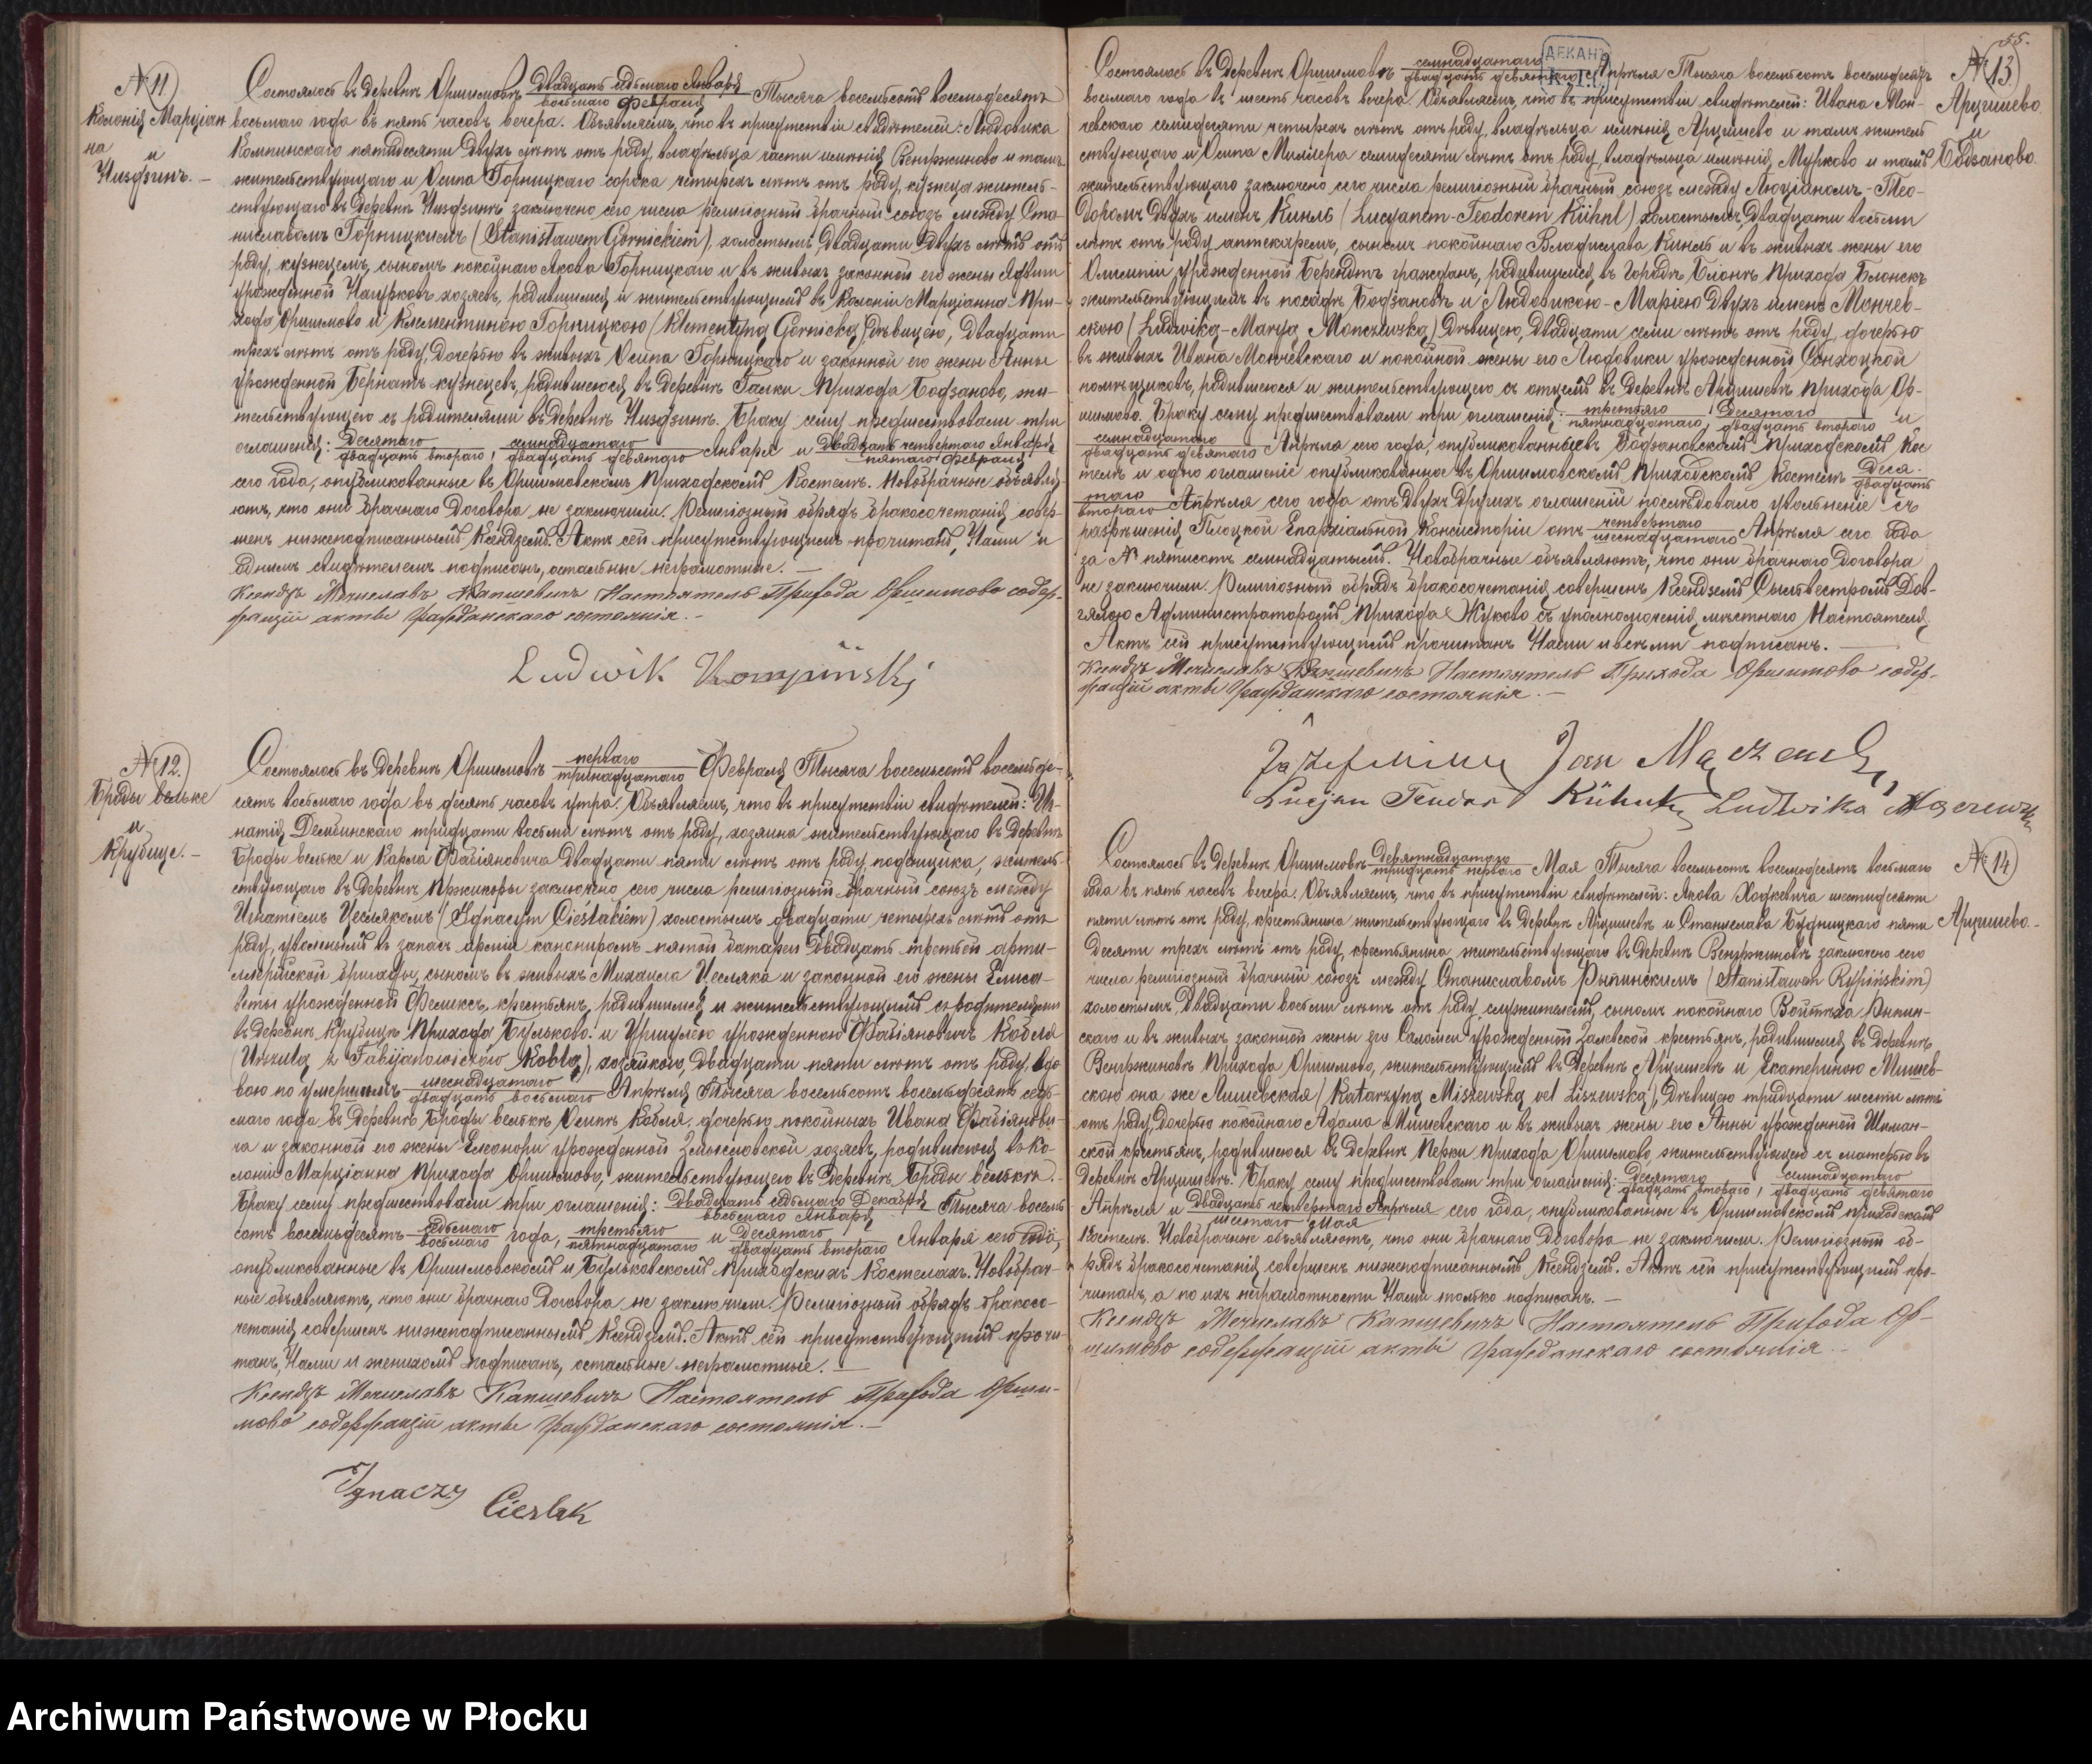 № 11
Колонія Марціанна
и
Низдзинъ. —
Состоялось въ деревнѣ Оршимовѣ двадцать седьмаго Января / восьмаго Февраля Тысяча восемьсотъ восемьдесятъ
восьмаго года въ пять часовъ вечера. Объявляемъ, что въ присутствіи свидѣтелей: Людовика
Компинскаго пятидесяти двухъ лѣтъ отъ роду, владѣльца части имѣнія Венгржиново и тамъ
жительствующаго и Осипа Горницкаго сорока четырехъ лѣтъ отъ роду, кузнеца житель-
ствующаго въ деревнѣ Низдзинѣ заключено сего числа религіозный брачный союзъ между Ста-
ниславомъ Горницкимъ (Stanisławem Górnickiem), холостымъ, двадцати двухъ лѣтъ отъ
роду, кузнецемъ, сыномъ покойнаго Якова Горницкаго и въ живыхъ законной его жены Ядвиги
урожденной Нагурковъ хозяевъ, родившимся и жительствующимъ въ Колоніи Марціанна При-
хода Оршимово и Клементиною Горницкою (Klementyną Górnicką), дѣвицею, двадцати
трехъ лѣтъ отъ роду, дочерью въ живыхъ Осипа Горницкаго и законной его жены Анны
урожденной Бернатъ кузнецевъ, родившеюся въ деревнѣ Галки Прихода Бодзаново, жи-
тельствующею съ родителями въ деревнѣ Низдзинѣ. Браку сему предшествовали три
оглашенія: десятаго / двадцать втораго, семнадцатаго / двадцать девятаго Января и двадцать четвертаго Января / пятаго Февраля
сего года, опубликованные въ Оршимовскомъ Приходскомъ Костелѣ. Новобрачные объявля-
ютъ, что они брачнаго договора не заключили. Религіозный обрядъ бракосочетанія совер-
шенъ нижеподписаннымъ Ксендземъ. Актъ сей присутствующимъ прочитанъ, Нами и
однимъ свидѣтелемъ подписанъ, остальные неграмотные. —
Ксендзъ Мечиславъ Капшевичъ Настоятель Прихода Оршимово содер-
жащій акты гражданскаго состоянія. —
Ludwik Kompiński
№ 12.
Броды вельке
и
Крубице. —
Состоялось въ деревнѣ Оршимовѣ перваго / тринадцатаго Февраля Тысяча восемьсотъ восемьде-
сятъ восьмаго года въ десять часовъ утра. Объявляемъ, что въ присутствіи свидѣтелей: Иг-
натія Дембинскаго тридцати восьми лѣтъ отъ роду, хозяина жительствующаго въ деревнѣ
Броды вельке и Карла Фабіяновича двадцати пяти лѣтъ отъ роду, поденщика, житель-
ствующаго въ деревнѣ Пржикоры заключено сего числа религіозный брачный союзъ между
Игнатіемъ Цеслякомъ (Ignacym Cieślakiem) холостымъ двадцати четырехъ лѣтъ отъ
роду, уволеннымъ въ запасъ арміи канониромъ пятой батареи двадцать третьей арти-
ллерійской бригады, сыномъ въ живыхъ Михаила Цесляка и законной его жены Елиса-
веты урожденной Феликсъ, крестьянъ, родившимся и жительствующимъ съ родителями
въ деревнѣ Крубицѣ Прихода Бульково и Уршулею урожденною Фабіяновичъ Кобля
(Urszulą z Fabijanowiczów Koblą), хозяйкою, двадцати пяти лѣтъ отъ роду, вдо-
вою по умершемъ шеснадцатаго / двадцать восьмаго Апрѣля Тысяча восемьсотъ восемьдесятъ седь-
маго года въ деревнѣ Броды велькѣ Осипѣ Кобля, дочерью покойныхъ Ивана Фабіянови-
ча и законной его жены Элеоноры урожденной Земысловской хозяевъ, родившеюся въ Ко-
лоніи Марціанна Прихода Оршимово, жительствующею въ деревнѣ Броды велькѣ.
Браку сему предшествовали три оглашенія: двадцать седьмаго Декабря / восьмаго Января Тысяча восемь-
сотъ восемьдесятъ седьмаго / восьмаго года, третьяго / пятнадцатаго и десятаго / двадцать втораго Января сего года,
опубликованные въ Оршимовскомъ и Бульковскомъ Приходскихъ Костелахъ. Новобрач-
ные объявляютъ, что они брачнаго договора не заключили. Религіозный обрядъ бракосо-
четанія совершенъ нижеподписаннымъ Ксендземъ. Актъ сей присутствующимъ прочи-
танъ, Нами и женихомъ подписанъ, остальные неграмотные. —
Ксендзъ Мечиславъ Капшевичъ Настоятель Прихода Орши-
мово содержащій акты гражданскаго состоянія. —
Ignaczy Cieslak
55.
ДЕКАНЪ
№ 13
Арцишево
и
Бодзаново
Состоялось въ деревнѣ Оршимовѣ семнадцатаго / двадцать девятаго Апрѣля Тысяча восемьсотъ восемьдесятъ
восьмаго года въ шесть часовъ вечера. Объявляемъ, что въ присутствіи свидѣтелей: Ивана Мон-
чевскаго семидесяти четырехъ лѣтъ отъ роду, владѣльца имѣнія Арцишево и тамъ житель-
ствующаго и Осипа Миллера семидесяти лѣтъ отъ роду, владѣльца имѣнія Мурково и тамъ
жительствующаго заключено сего числа религіозный брачный союзъ между Люціаномъ-Тео-
доромъ двухъ именъ Кинль (Lucyanem-Teodorem Kühnl) холостымъ, двадцати восьми
лѣтъ отъ роду аптекаремъ, сыномъ покойнаго Владислава Кинль и въ живыхъ жены его
Олимпіи урожденной Берендтъ гражданъ, родившимся въ Городѣ Блонѣ Прихода Блонскъ
жительствующимъ въ посадѣ Бодзановѣ и Людовикою-Маріею двухъ именъ Мончев-
скою (Ludwiką-Maryą Monczewską) дѣвицею, двадцати семи лѣтъ отъ роду, дочерью
въ живыхъ Ивана Мончевскаго и покойной жены его Людовики урожденной Сонхоцкой
помѣщиковъ, родившеюся и жительствующею съ отцемъ въ деревнѣ Арцишевѣ Прихода Ор-
шимово. Браку сему предшествовали три оглашенія: третьяго / пятнадцатаго, десятаго / двадцать втораго и
семнадцатаго / двадцать девятаго Апрѣля сего года, опубликованные въ Бодзановскомъ Приходскомъ Кос-
телѣ и одно оглашеніе опубликованное въ Оршимовскомъ Приходскомъ Костелѣ деся- / двадцать
таго / втораго Апрѣля сего года отъ двухъ другихъ оглашеній послѣдовало увольненіе съ
разрѣшенія Плоцкой Епархіальной Консисторіи отъ четвертаго / шеснадцатаго Апрѣля сего года
за № пятисотъ семнадцатымъ. Новобрачные объявляютъ, что они брачнаго договора
не заключили. Религіозный обрядъ бракосочетанія совершенъ Ксендземъ Сильвестромъ Дов-
гялло Администраторомъ Прихода Жуково съ уполномоченія мѣстнаго Настоятеля.
Актъ сей присутствующимъ прочитанъ Нами и всѣми подписанъ. —
Ксендзъ Мечиславъ Капшевичъ Настоятель Прихода Оршимово содер-
жащій акты гражданскаго состоянія. —
Jan
Lucjan Teodor Kühnl Ludwika
№ 14
Арцишево. —
Состоялось въ деревнѣ Оршимовѣ девятнадцатаго / тридцать перваго Мая Тысяча восемьсотъ восемьдесятъ восьмаго
года въ пять часовъ вечера. Объявляемъ, что въ присутствіи свидѣтелей: Якова Ходкевича шестидесяти
пяти лѣтъ отъ роду, крестьянина жительствующаго въ деревнѣ Арцишевѣ и Станислава Будницкаго пяти-
десяти трехъ лѣтъ отъ роду, крестьянина жительствующаго въ деревнѣ Венгржиновѣ заключено сего
числа религіозный брачный союзъ между Станиславомъ Рыпинскимъ (Stanisławem Rypińskim)
холостымъ двадцати восьми лѣтъ отъ роду, служителемъ, сыномъ покойнаго Войтѣха Рыпин-
скаго и въ живыхъ законной жены его Саломеи урожденной Залевской крестьянъ, родившимся въ деревнѣ
Венгржиновѣ Прихода Оршимово, жительствующимъ въ деревнѣ Арцишевѣ и Екатериною Мишев-
скою она же Лишевская (Katarzyną Miszewską vel Liszewską), дѣвицею тридцати шести лѣтъ
отъ роду, дочерью покойнаго Адама Мишевскаго и въ живыхъ жены его Анны урожденной Шиман-
ской крестьянъ, родившеюся въ деревнѣ Перки Прихода Оршимово, жительствующею съ матерью въ
деревнѣ Арцишевѣ. Браку сему предшествовали три оглашенія: десятаго / двадцать втораго, семнадцатаго / двадцать девятаго
Апрѣля и двадцать четвертаго Апрѣля / шестаго Мая сего года, опубликованные въ Оршимовскомъ приходскомъ
Костелѣ. Новобрачные объявляютъ, что они брачнаго договора не заключили. Религіозный об-
рядъ бракосочетанія совершенъ нижеподписаннымъ Ксендземъ. Актъ сей присутствующимъ про-
читанъ, а по ихъ неграмотности Нами только подписанъ. —
Ксендзъ Мечиславъ Капшевичъ Настоятель Прихода Ор-
шимово содержащій акты гражданскаго состоянія —
Archiwum Państwowe w Płocku